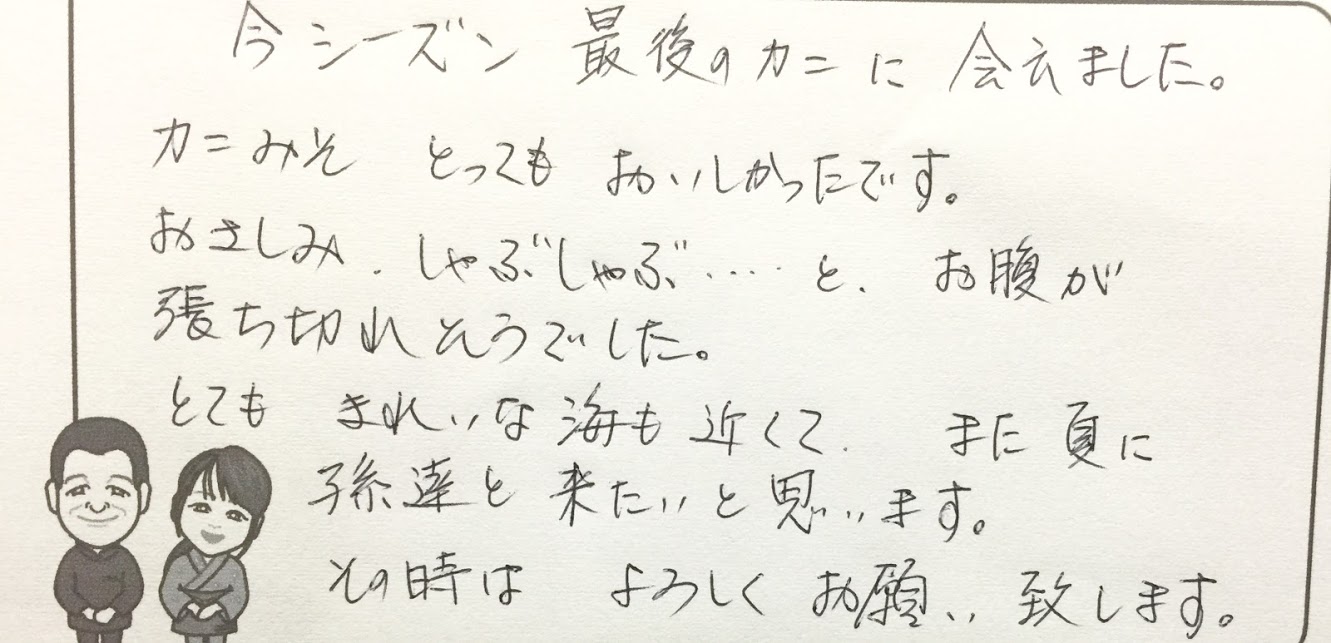 今シーズン 最後のカニに 会えました。
カニみそ とっても おいしかったです。
おさしみ、しゃぶしゃぶ‥‥と、お腹が
張ち切れそうでした。
とても きれいな海も近くて、 また夏に
孫達と来たいと思います。
その時は よろしくお願い致します。